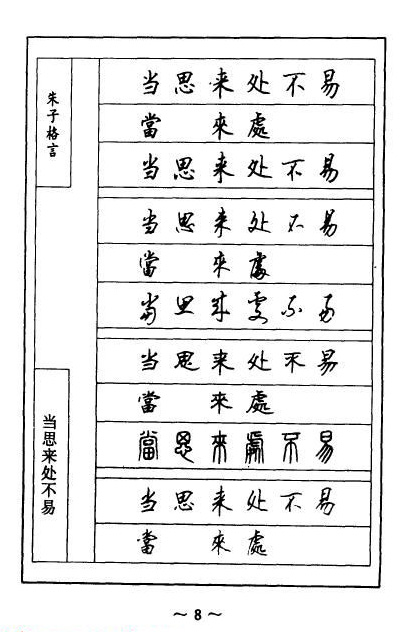 朱子格言
当思来处不易
當 來處
当思来处不易
当思来处不易
當 來處
当思来处不易
当思来处不易
當 來處
當思來處不易
当思来处不易
當 來處
当思来处不易
~ 8 ~